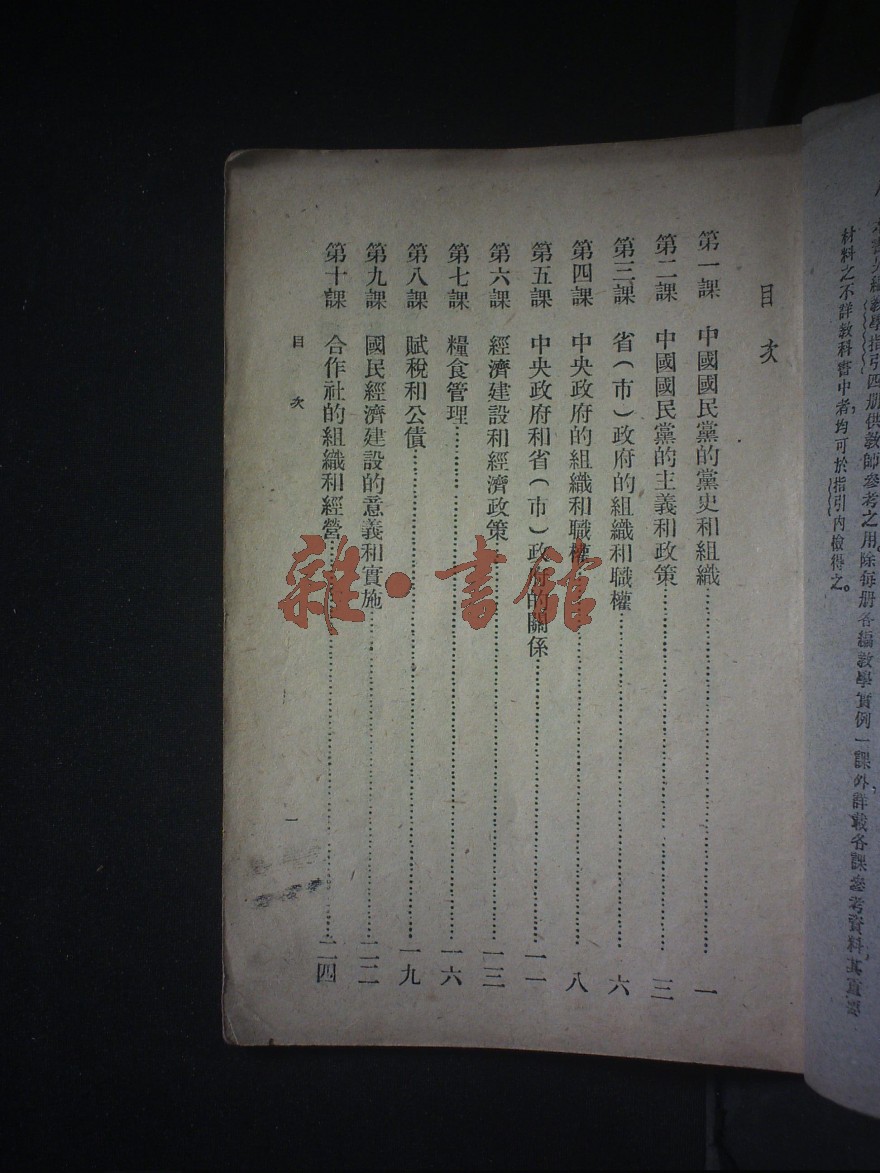 材料之不詳教科書中者,均可於指引內檢得之。
目次
第一課　中國國民黨的黨史和組織……一
第二課　中國國民黨的主義和政策……三
第三課　省(市)政府的組織和職權……六
第四課　中央政府的組織和職權……八
第五課　中央政府和省(市)政府的關係……一一
第六課　經濟建設和經濟政策……一三
第七課　糧食管理……一六
第八課　賦稅和公債……一九
第九課　國民經濟建設的意義和實施……二二
第十課　合作社的組織和經營……二四
目次　一
雜·書館